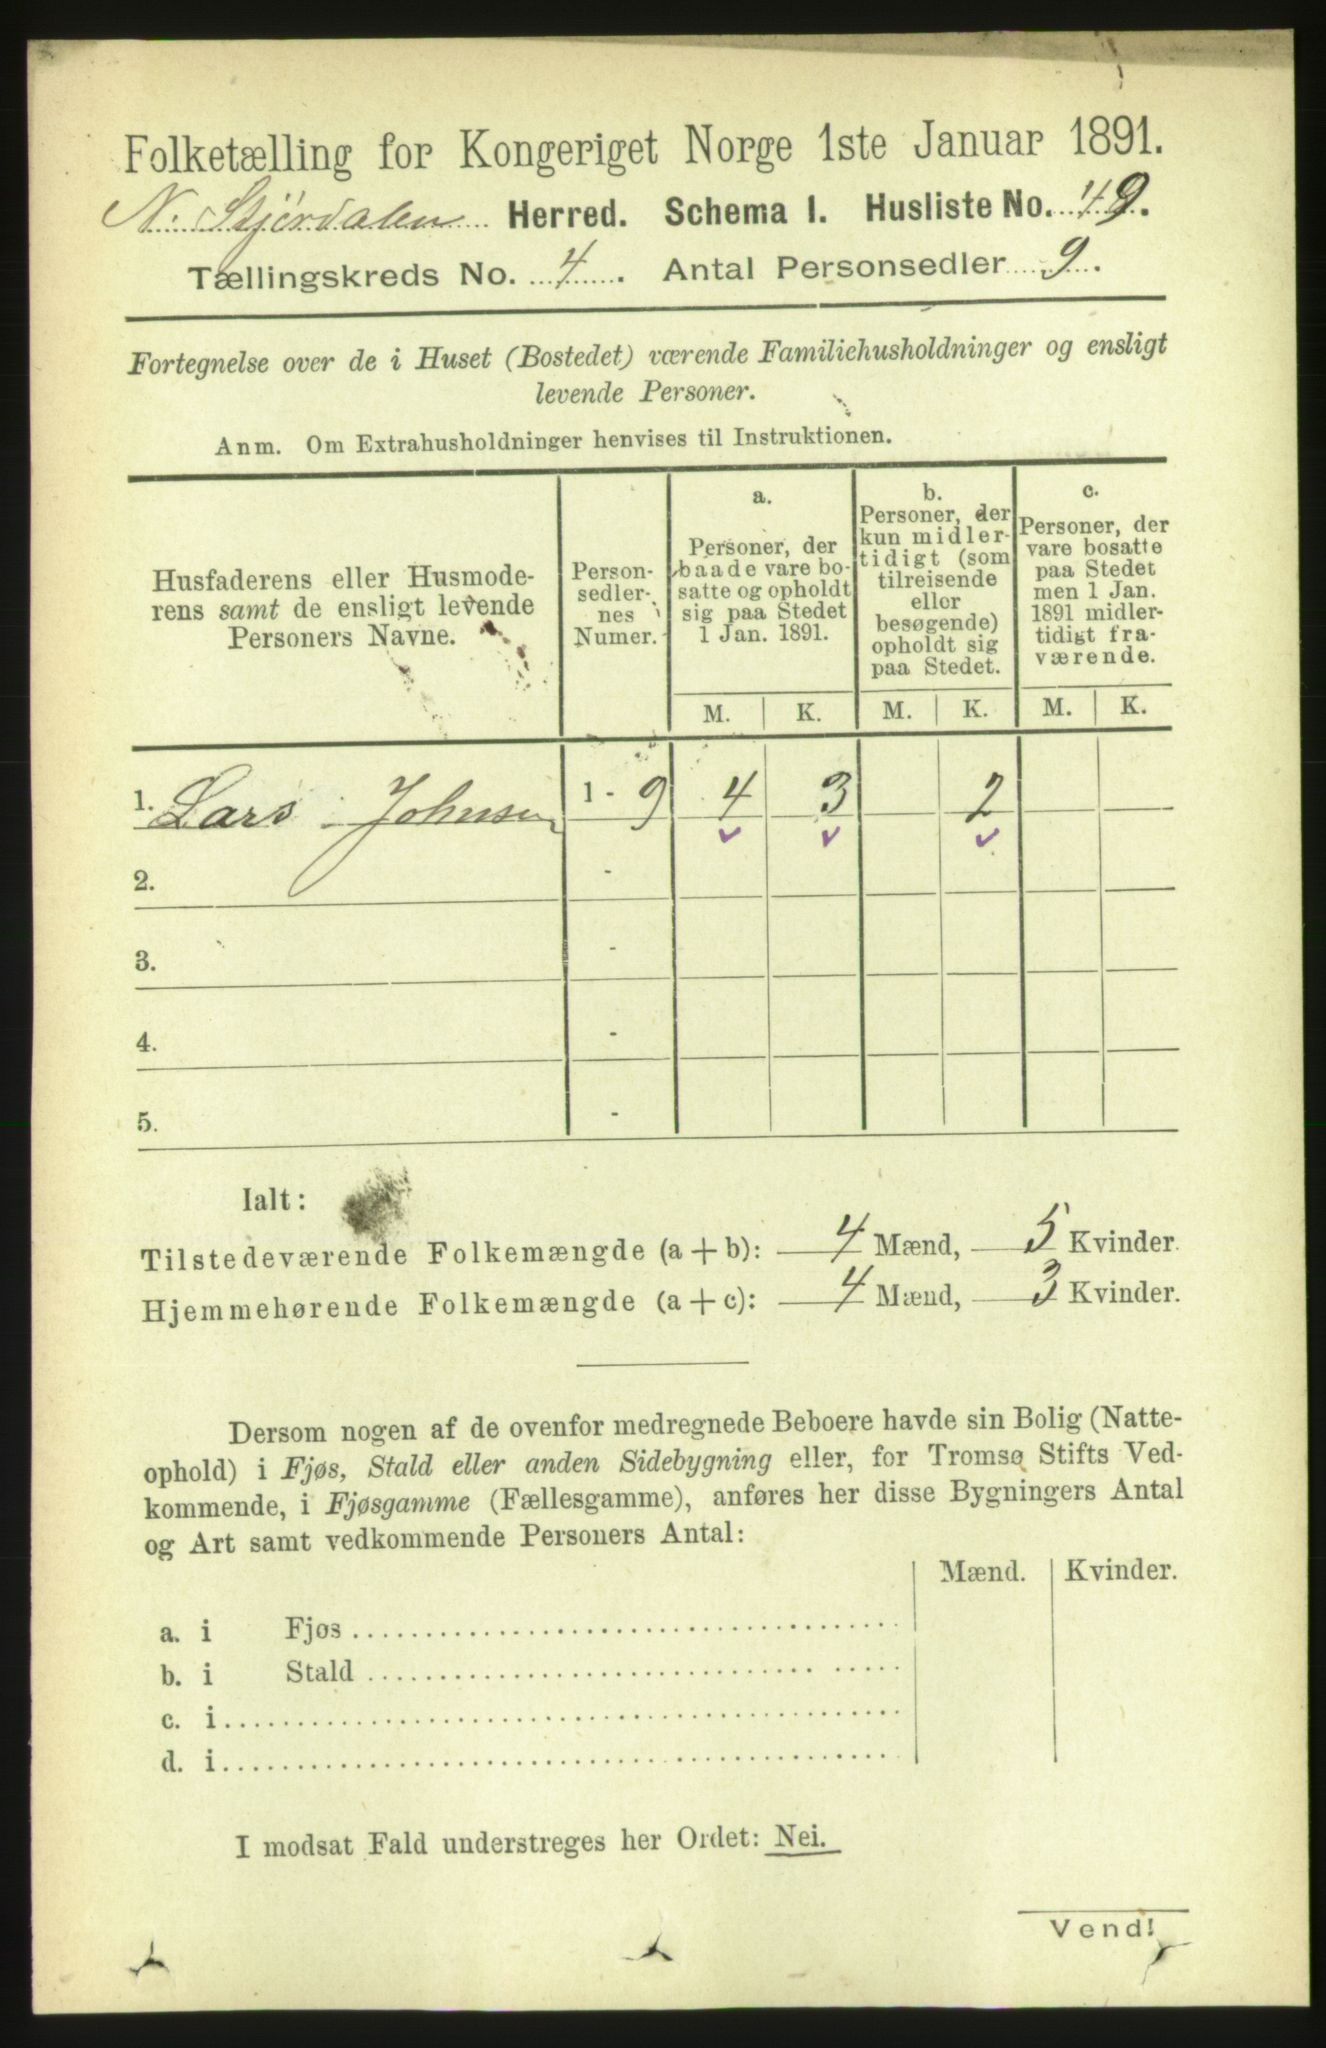 Folketælling for Kongeriget Norge 1ste Januar 1891.
N. Stjørdalen Herred. Schema I. Husliste No. 49.
Tællingskreds No. 4. Antal Personsedler 9.
Fortegnelse over de i Huset (Bostedet) værende Familiehusholdninger og ensligt
levende Personer.
Anm. Om Extrahusholdninger henvises til Instruktionen.
Husfaderens eller Husmode-
rens samt de ensligt levende
Personers Navne.
Person-
sedler-
nes
Numer.
a.
Personer, der
baade vare bo-
satte og opholdt
sig paa Stedet
1 Jan. 1891.
b.
Personer, der
kun midler-
tidigt (som
tilreisende
eller
besøgende)
opholdt sig
paa Stedet.
c.
Personer, der
vare bosatte
paa Stedet
men 1 Jan.
1891 midler-
tidigt fra-
værende.
M. K. M. K. M. K.
1. Lars Johnsen 1 - 9 4 3 2
2. -
3. -
4. -
5. -
Ialt:
Tilstedeværende Folkemængde (a + b): 4 Mænd, 5 Kvinder.
Hjemmehørende Folkemængde (a + c): 4 Mænd, 3 Kvinder.
Dersom nogen af de ovenfor medregnede Beboere havde sin Bolig (Natte-
ophold) i Fjøs, Stald eller anden Sidebygning eller, for Tromsø Stifts Ved-
kommende, i Fjøsgamme (Fællesgamme), anføres her disse Bygningers Antal
og Art samt vedkommende Personers Antal:
Mænd. Kvinder.
a. i Fjøs
b. i Stald
c. i
d. i
I modsat Fald understreges her Ordet: Nei.
Vend!